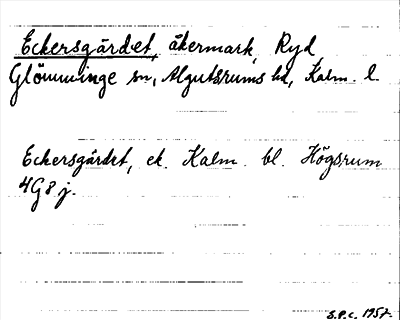 Eckersgärdet, åkermark, Ryd
Glömminge sn, Algutsrums hd, Kalm. l.
Eckersgärdet, ek. Kalm. bl. Högsrum
4G8j.
S.P.C. 1957.